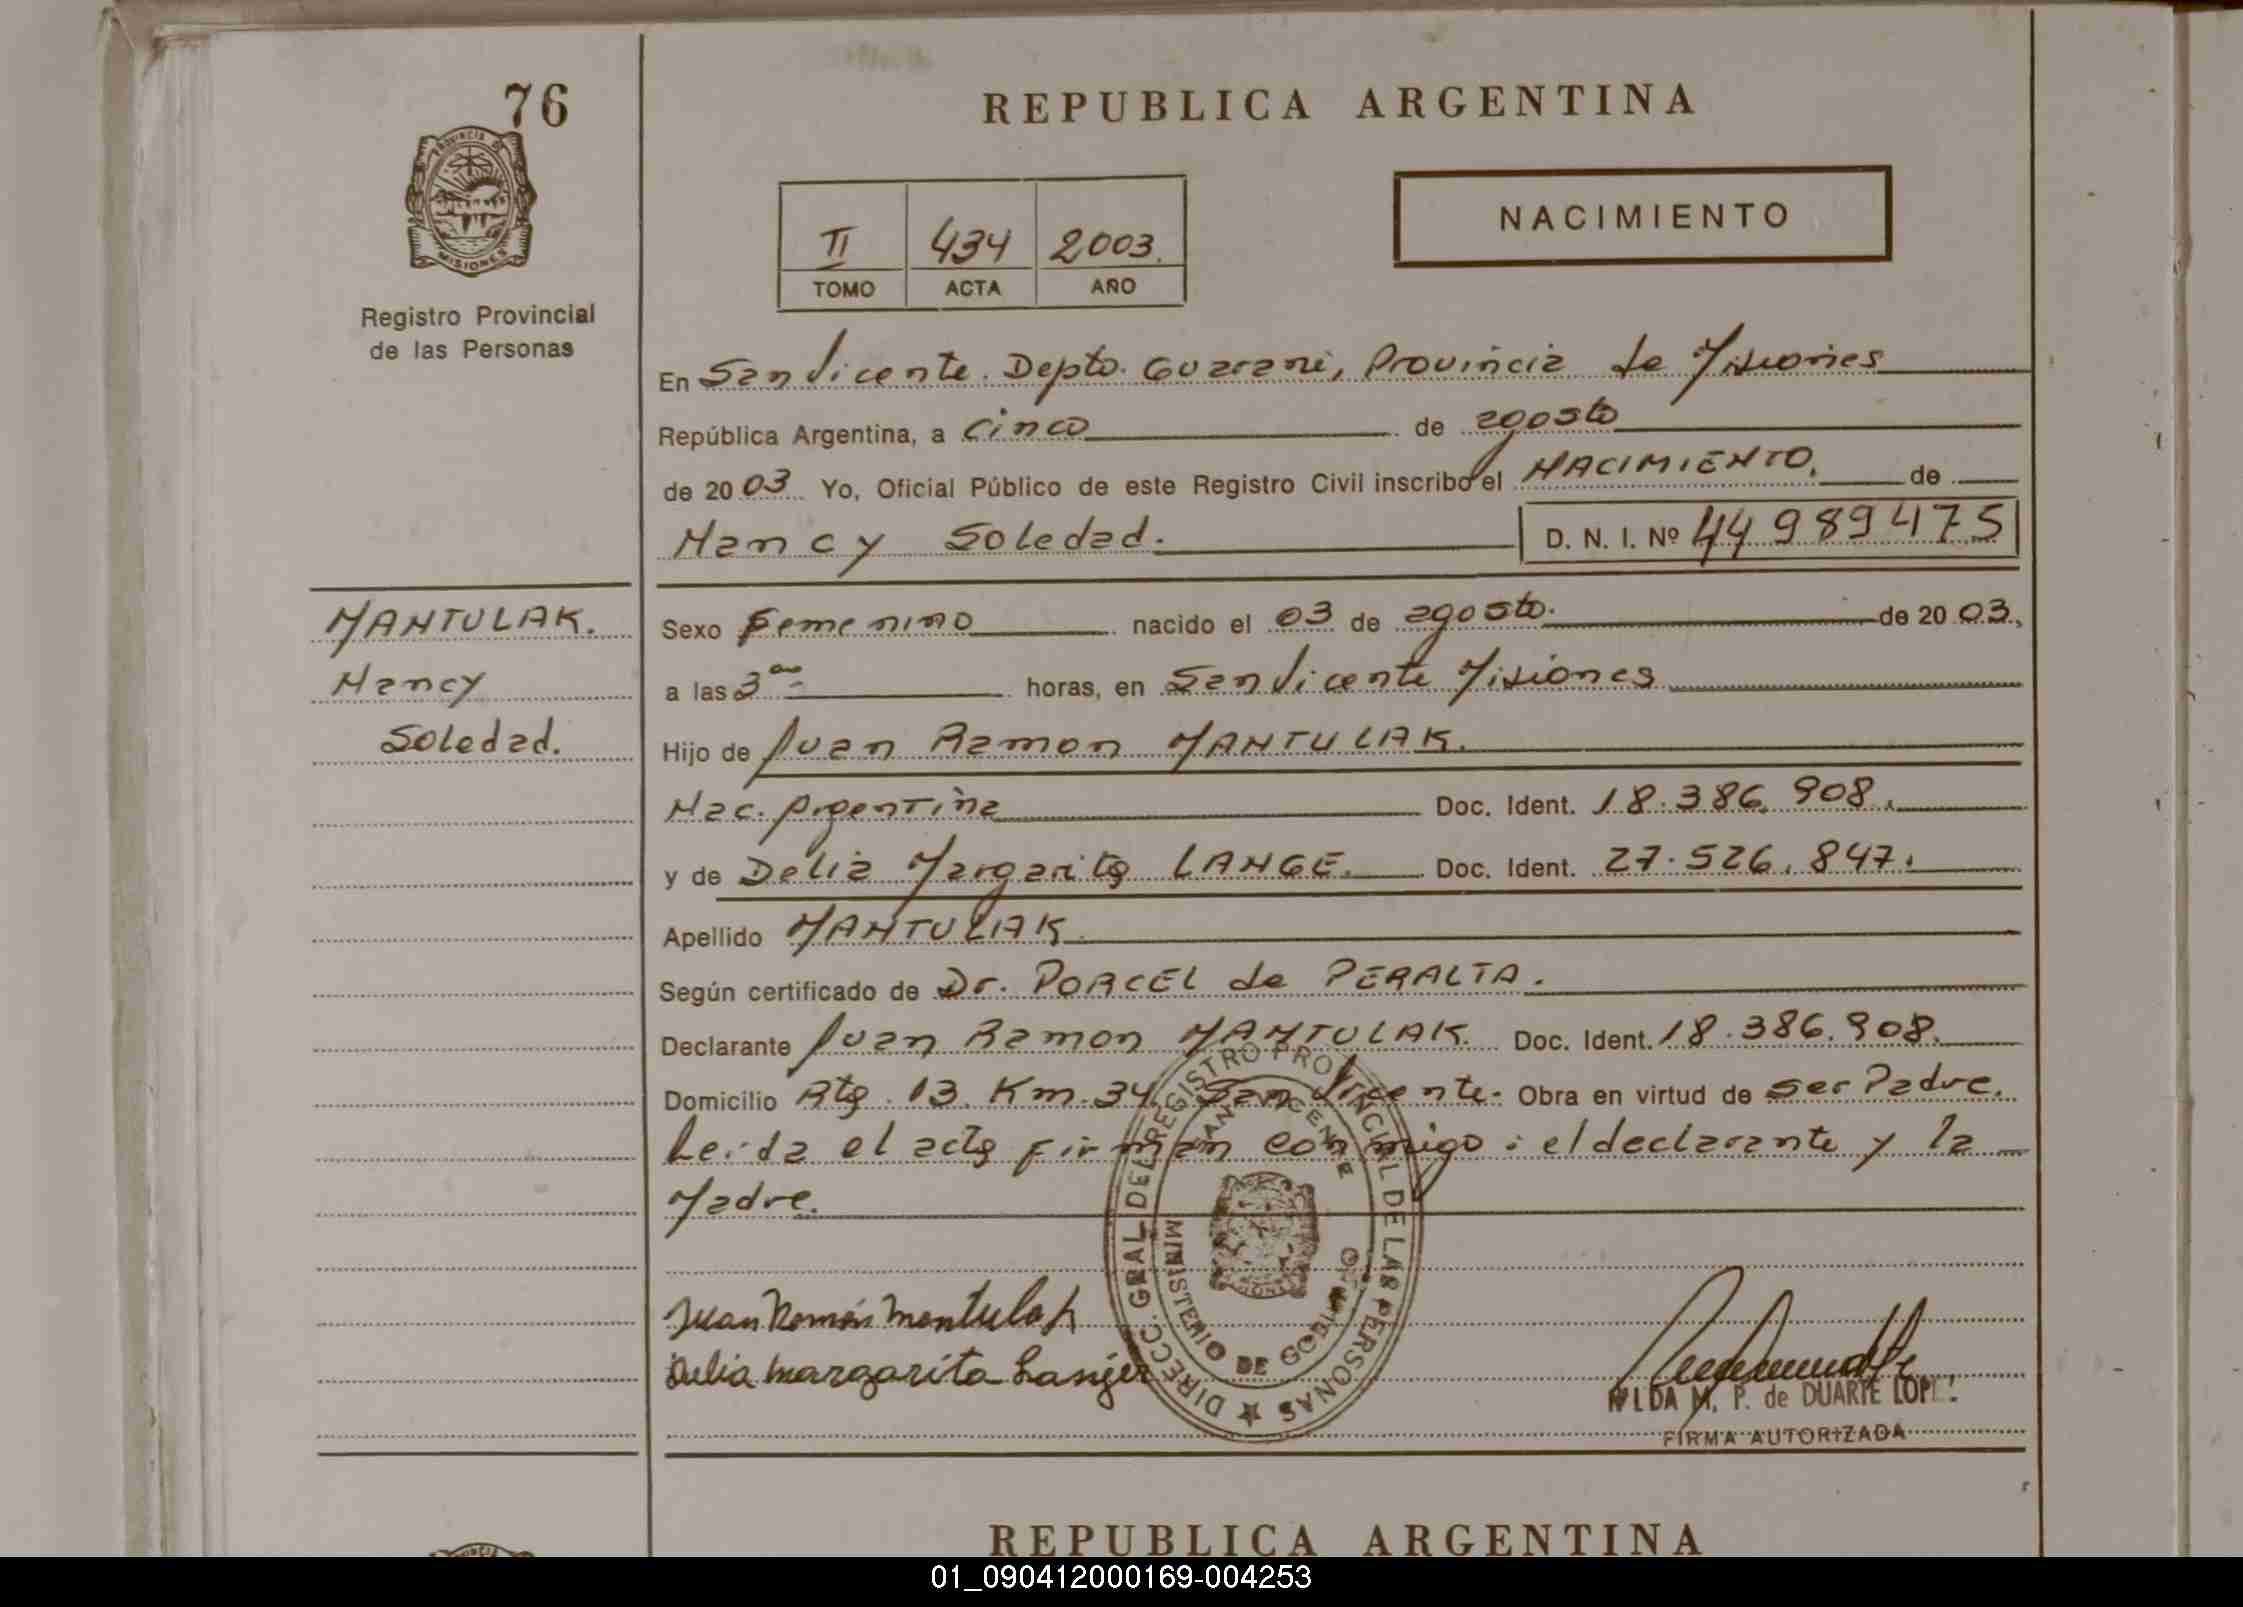 76
REPUBLICA ARGENTINA
PROVINCIA DE
MISIONES
Registro Provincial
de las Personas
II 434 2003.
TOMO ACTA AÑO
NACIMIENTO
En San Vicente. Depto. Guarani, Provincia de Misiones
República Argentina, a Cinco de agosto
de 2003 Yo, Oficial Público de este Registro Civil inscribo el NACIMIENTO. de
Nancy Soledad. D. N. I. Nº 44989475
MANTULAK.
Nancy
Soledad.
Sexo Femenino nacido el 03 de agosto. de 2003.,
a las 3 horas, en San Vicente Misiones
Hijo de Juan Ramon MANTULAK.
Nac. Argentina Doc. Ident. 18.386.908.
y de Delia Margarita LANGE. Doc. Ident. 27.526.847.
Apellido MANTULAK
Según certificado de Dr. PORCEL de PERALTA.
Declarante Juan Ramon MANTULAK. Doc. Ident. 18.386.908.
Domicilio Rta. 13. Km. 34. San Vicente. Obra en virtud de ser Padre.
Leida el acta firman conmigo: el declarante y la
Madre.
DIRECC. GRAL DEL REGISTRO PROVINCIAL DE LAS PERSONAS
SAN VICENTE
MINISTERIO DE GOBIERNO
Juan Ramón Mantulak
Delia Margarita
M. P. de DUARTE
FIRMA AUTORIZADA
REPUBLICA ARGENTINA
01_090412000169-004253